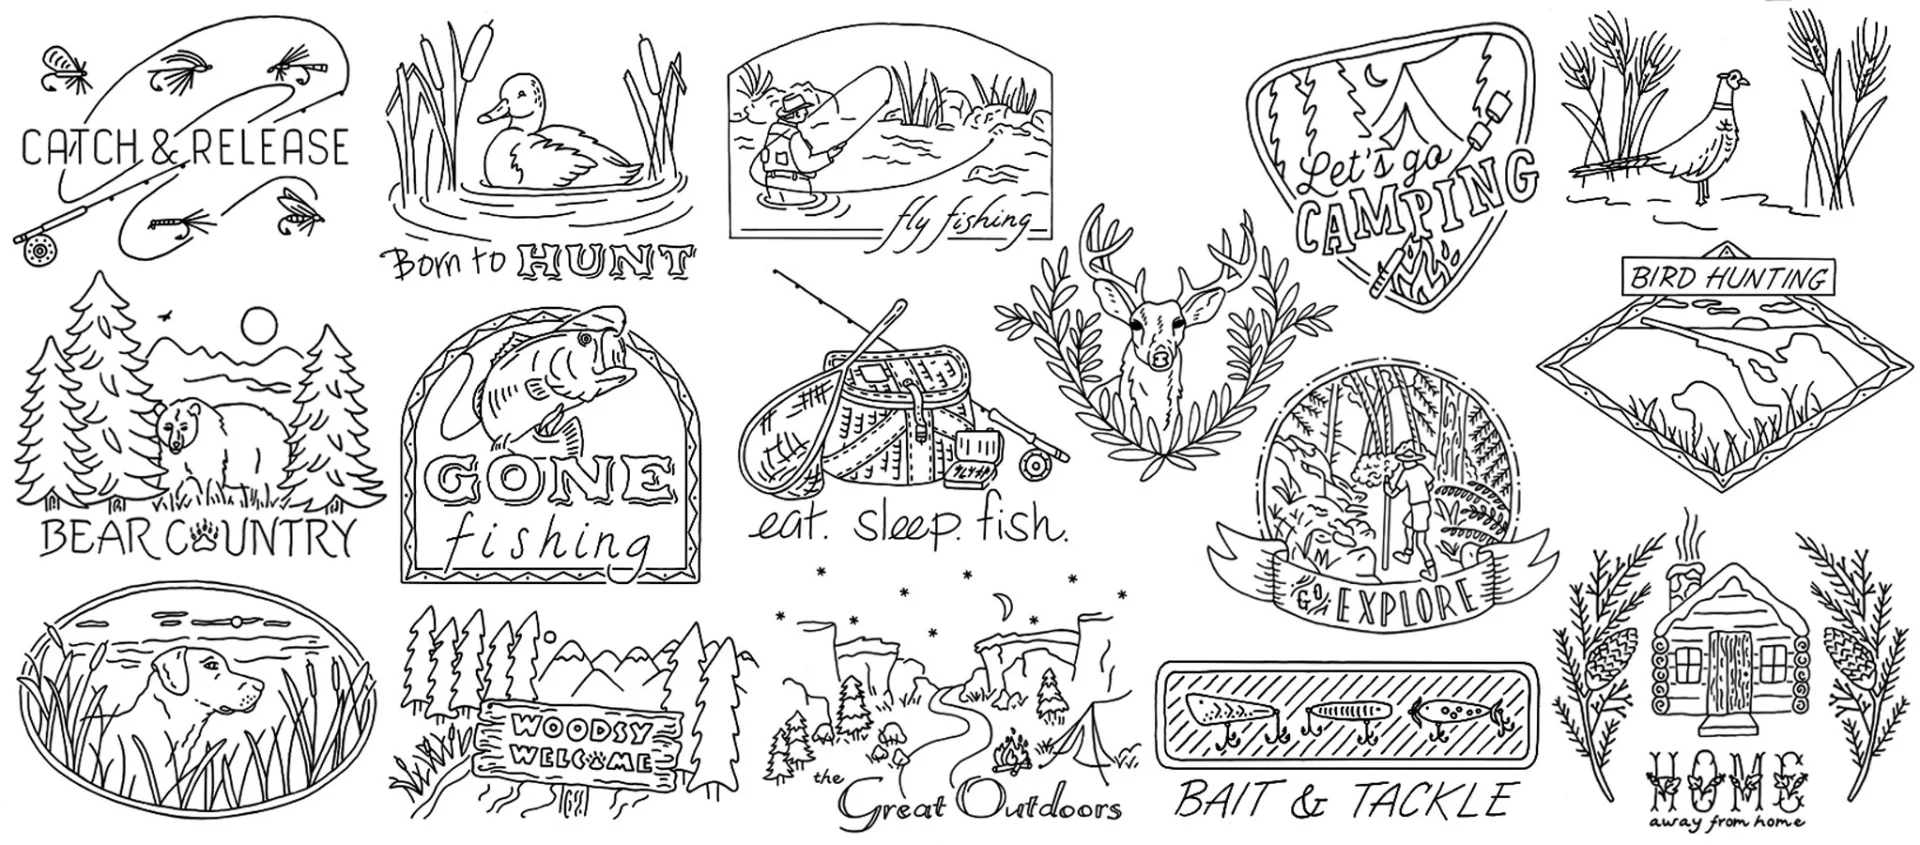 CATCH & RELEASE
Born to HUNT
fly fishing
Let's go
CAMPING
BIRD HUNTING
BEAR COUNTRY
GONE
fishing
eat. sleep. fish.
GO
EXPLORE
WOODSY
WELCOME
the
Great Outdoors
BAIT & TACKLE
HOME
away from home